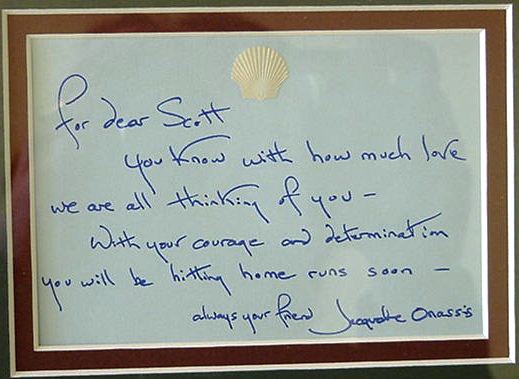 For dear Scott
you know with how much love
we are all thinking of you –
With your courage and determination
you will be hitting home runs soon –
always your friend Jacqueline Onassis